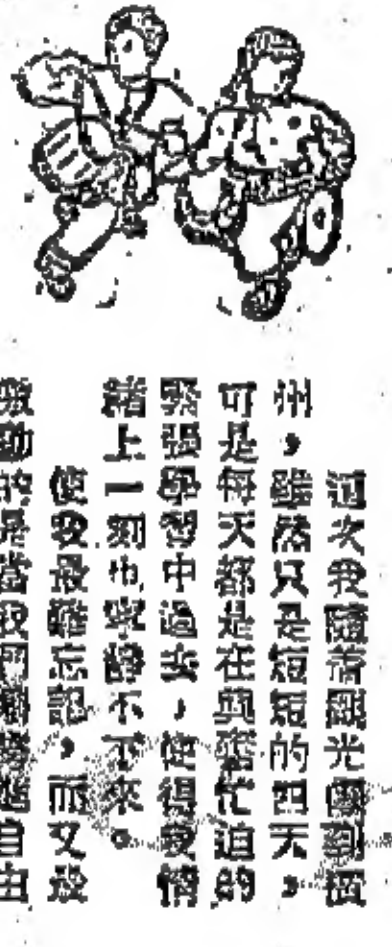 這次我隨着觀光團到廣
州，雖然只是短短的四天，
可是每天都是在興奮忙迫的
緊張學習中過去，使得我情
緒上一刻也寧靜不下來。
使我最難忘記，而又最
激動的是當我們 自由